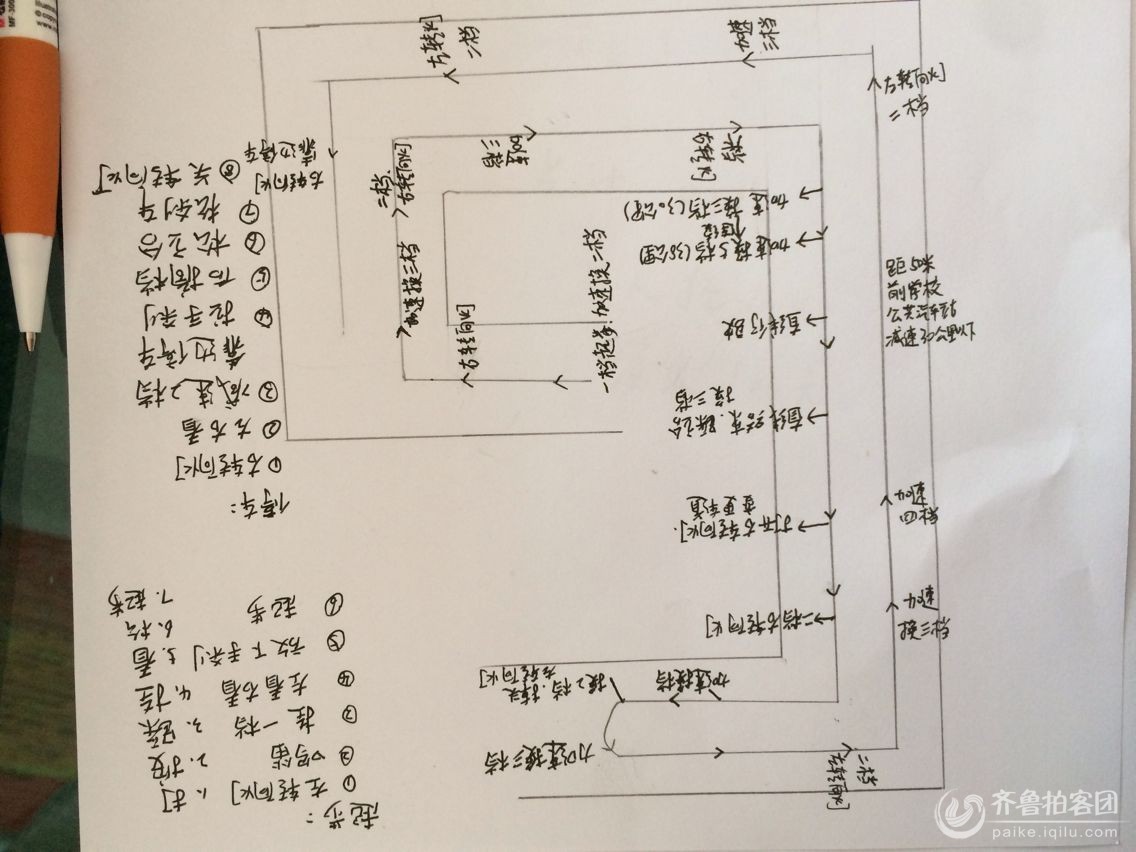 起步:
① 左转向灯 1. 打
② 鸣笛 2. 按
③ 挂一档 3. 踩
④ 左看右看 4. 挂
⑤ 放下手刹 5. 看
⑥ 起步 6. 松
7. 起步
停车:
① 右转向灯
② 左右看
③ 减速2档
靠边停车
④ 拉手刹
⑤ 而摘档
⑥ 松离合
⑦ 松刹车
⑧ 关转向灯
一档起步. 加速换二档
右转向灯
加速换三档
二档.
右转向灯
三档
右转灯
二档
加速 换三档(30公里)
加速换5档
直线行驶
直线结束. 踩离合
换三档
打开右转向灯.
变更车道
二档右转向灯
加速换档
换2档. 掉头
左转向灯
加速换三档
二档
左转向灯
换三档
加速
四档
加速
距50米
前学校
公共汽车站
减速30公里以下
左转向灯
二档
加速
三档
左转灯
二档
右转向灯
靠边停车
齐鲁拍客团
paike.iqilu.com